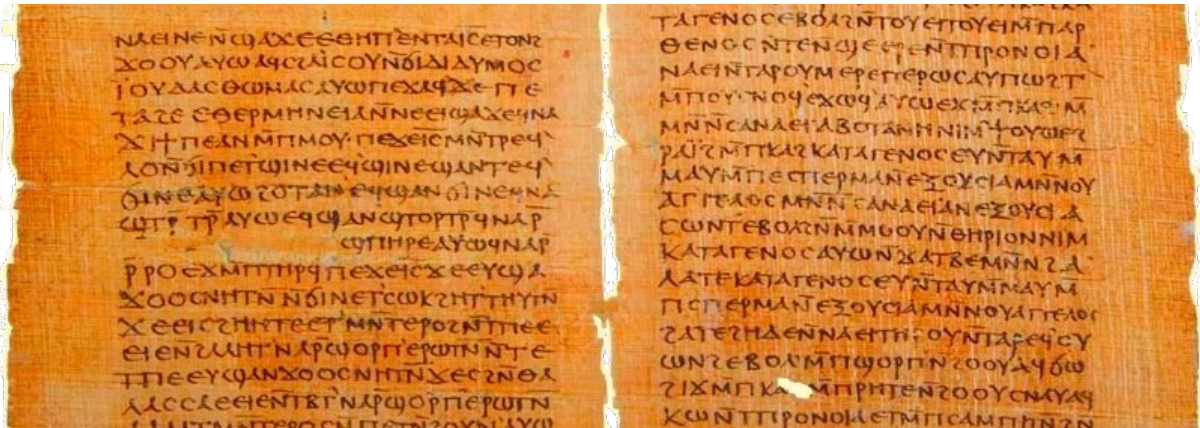 ⲛⲁⲉⲓⲛⲉⲛ̄ϣⲁϫⲉⲉⲑⲏⲡⲉⲛⲧⲁⲓ̅ⲥ̅ⲉⲧⲟⲛϩ
ϫⲟⲟⲩⲁⲩⲱⲁϥⲥϩⲁⲓⲥⲟⲩⲛ̄ϭⲓⲇⲓⲇⲩⲙⲟⲥ
ⲓ̈ⲟⲩⲇⲁⲥⲑⲱⲙⲁⲥⲁⲩⲱⲡⲉϫⲁϥϫⲉⲡⲉ
ⲧⲁϩⲉⲉⲑⲉⲣⲙⲏⲛⲉⲓⲁⲛ̄ⲛⲉⲉⲓϣⲁϫⲉϥⲛⲁ
ϫⲓϯⲡⲉⲁⲛⲙ̄ⲡⲙⲟⲩ·ⲡⲉϫⲉⲓ̅ⲥ̅ⲙⲛ̄ⲧⲣⲉϥ
ⲗⲟⲛ̄ϭⲓⲡⲉⲧϣⲓⲛⲉⲉϥϣⲓⲛⲉϣⲁⲛⲧⲉϥ
ϭⲓⲛⲉⲁⲩⲱϩⲟⲧⲁⲛⲉϥϣⲁⲛϭⲓⲛⲉϥⲛⲁ
ϣⲧⲣ̄ⲧⲣ̄ⲁⲩⲱⲉϥϣⲁⲛϣⲧⲟⲣⲧⲣ̄ϥⲛⲁⲣ̄
ϣⲡⲏⲣⲉⲁⲩⲱϥⲛⲁⲣ̄
ⲣ̄ⲣⲟⲉϫⲙ̄ⲡⲧⲏⲣϥⲡⲉϫⲉⲓ̅ⲥ̅ϫⲉⲉⲩϣⲁ
ϫⲟⲟⲥⲛⲏⲧⲛ̄ⲛ̄ϭⲓⲛⲉⲧⲥⲱⲕϩⲏⲧⲧⲏⲩⲧⲛ̄
ϫⲉⲉⲓⲥϩⲏⲏⲧⲉⲉⲧⲙⲛ̄ⲧⲉⲣⲟϩⲛ̄ⲧⲡⲉⲉ
ⲉⲓⲉⲛ̄ϩⲁⲗⲏⲧⲛⲁⲣ̄ϣⲟⲣⲡⲉⲣⲱⲧⲛ̄ⲛ̄ⲧⲉ
ⲧⲡⲉⲉⲩϣⲁⲛϫⲟⲟⲥⲛⲏⲧⲛ̄ϫⲉⲥϩⲛ̄ⲑⲁ
ⲗⲁⲥⲥⲁⲉⲉⲓⲉⲛ̄ⲧⲃⲧⲛⲁⲣ̄ϣⲟⲣⲡⲉⲣⲱⲧⲛ̄
ⲧⲁⲅⲉⲛⲟⲥⲉⲃⲟⲗϩⲛ̄ⲧⲟⲩⲉⲡⲟⲩⲉⲓⲙ̄ⲡⲁⲣ
ⲑⲉⲛⲟⲥⲛ̄ⲧⲉⲛ̄ϣⲉⲉⲣⲉⲛ̄ⲧⲡⲣⲟⲛⲟⲓⲁ
ⲛⲁⲉⲓⲛ̄ⲧⲁⲣⲟⲩⲙⲉⲣⲉⲡⲉⲣⲱⲥⲁⲩⲡⲱϩⲧ
ⲙ̄ⲡⲟⲩⲥⲛⲟϥⲉϫⲱϥⲁⲩⲱⲉϫⲙ̄ⲡⲕⲁϩⲙ̄
ⲙⲛ̄ⲛ̄ⲥⲁⲛⲁⲉⲓⲁⲃⲟⲧⲁⲛⲏⲛⲓⲙϯⲟⲩⲱⲉϩ
ⲣⲁⲓ̈ϩⲙ̄ⲡⲕⲁϩⲕⲁⲧⲁⲅⲉⲛⲟⲥⲉⲩⲛ̄ⲧⲁⲩⲙ̄
ⲙⲁⲩⲙ̄ⲡⲉⲥⲡⲉⲣⲙⲁⲛ̄ⲉⲝⲟⲩⲥⲓⲁⲙⲛ̄ⲛⲟⲩ
ⲁⲅⲅⲉⲗⲟⲥⲙⲛ̄ⲛ̄ⲥⲁⲛⲁⲉⲓⲁⲛⲉⲝⲟⲩⲥⲓⲁ
ⲥⲱⲛⲧⲉⲃⲟⲗϩⲛ̄ⲙ̄ⲙⲟⲟⲩⲛ̄ⲑⲏⲣⲓⲟⲛⲛⲓⲙ
ⲕⲁⲧⲁⲅⲉⲛⲟⲥⲁⲩⲱⲛ̄ϫⲁⲧⲃⲉⲙⲛ̄ⲛ̄ϩⲁ
ⲗⲁⲧⲉⲕⲁⲧⲁⲅⲉⲛⲟⲥⲉⲩⲛ̄ⲧⲁⲩⲙ̄ⲙⲁⲩⲙ̄
ⲡⲥⲡⲉⲣⲙⲁⲛ̄ⲉⲝⲟⲩⲥⲓⲁⲙⲛ̄ⲛⲟⲩⲁⲅⲅⲉⲗⲟⲥ
ϩⲁⲧⲉϩⲏⲇⲉⲛ̄ⲛⲁⲉⲓⲧⲏⲣⲟⲩⲛ̄ⲧⲁⲣⲉϥⲥⲟⲩ
ⲱⲛϩⲉⲃⲟⲗⲙ̄ⲡϣⲟⲣⲡⲛ̄ϩⲟⲟⲩⲁϥϭⲱ
ϩⲓϫⲙ̄ⲡⲕⲁ ⲙ̄ⲡⲣⲏⲧⲉⲛ̄ϩⲟⲟⲩⲥⲛⲁⲩⲁϥ
ⲕⲱⲛ̄ⲧⲡⲣⲟⲛⲟⲓⲁⲉⲧⲙ̄ⲡⲥⲁⲙⲡⲓⲧⲛ̄ϩⲛ̄